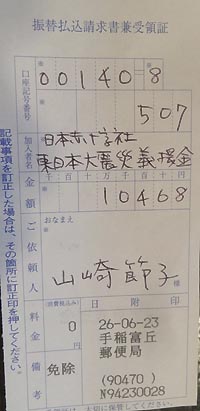 振替払込請求書兼受領証
口座記号番号
00140=8
507
加入者名
日本赤十字社
東日本大震災義援金
金額
千百十万千百十円
10468
ご依頼人
おなまえ
山崎節子 様
料金
(消費税込み)
0 円
備考
免除
日附印
26-06-23
手稲富丘
郵便局
(90470)
N94230028
記載事項を訂正した場合は、その箇所に訂正印を押してください。
大切に保管してください。